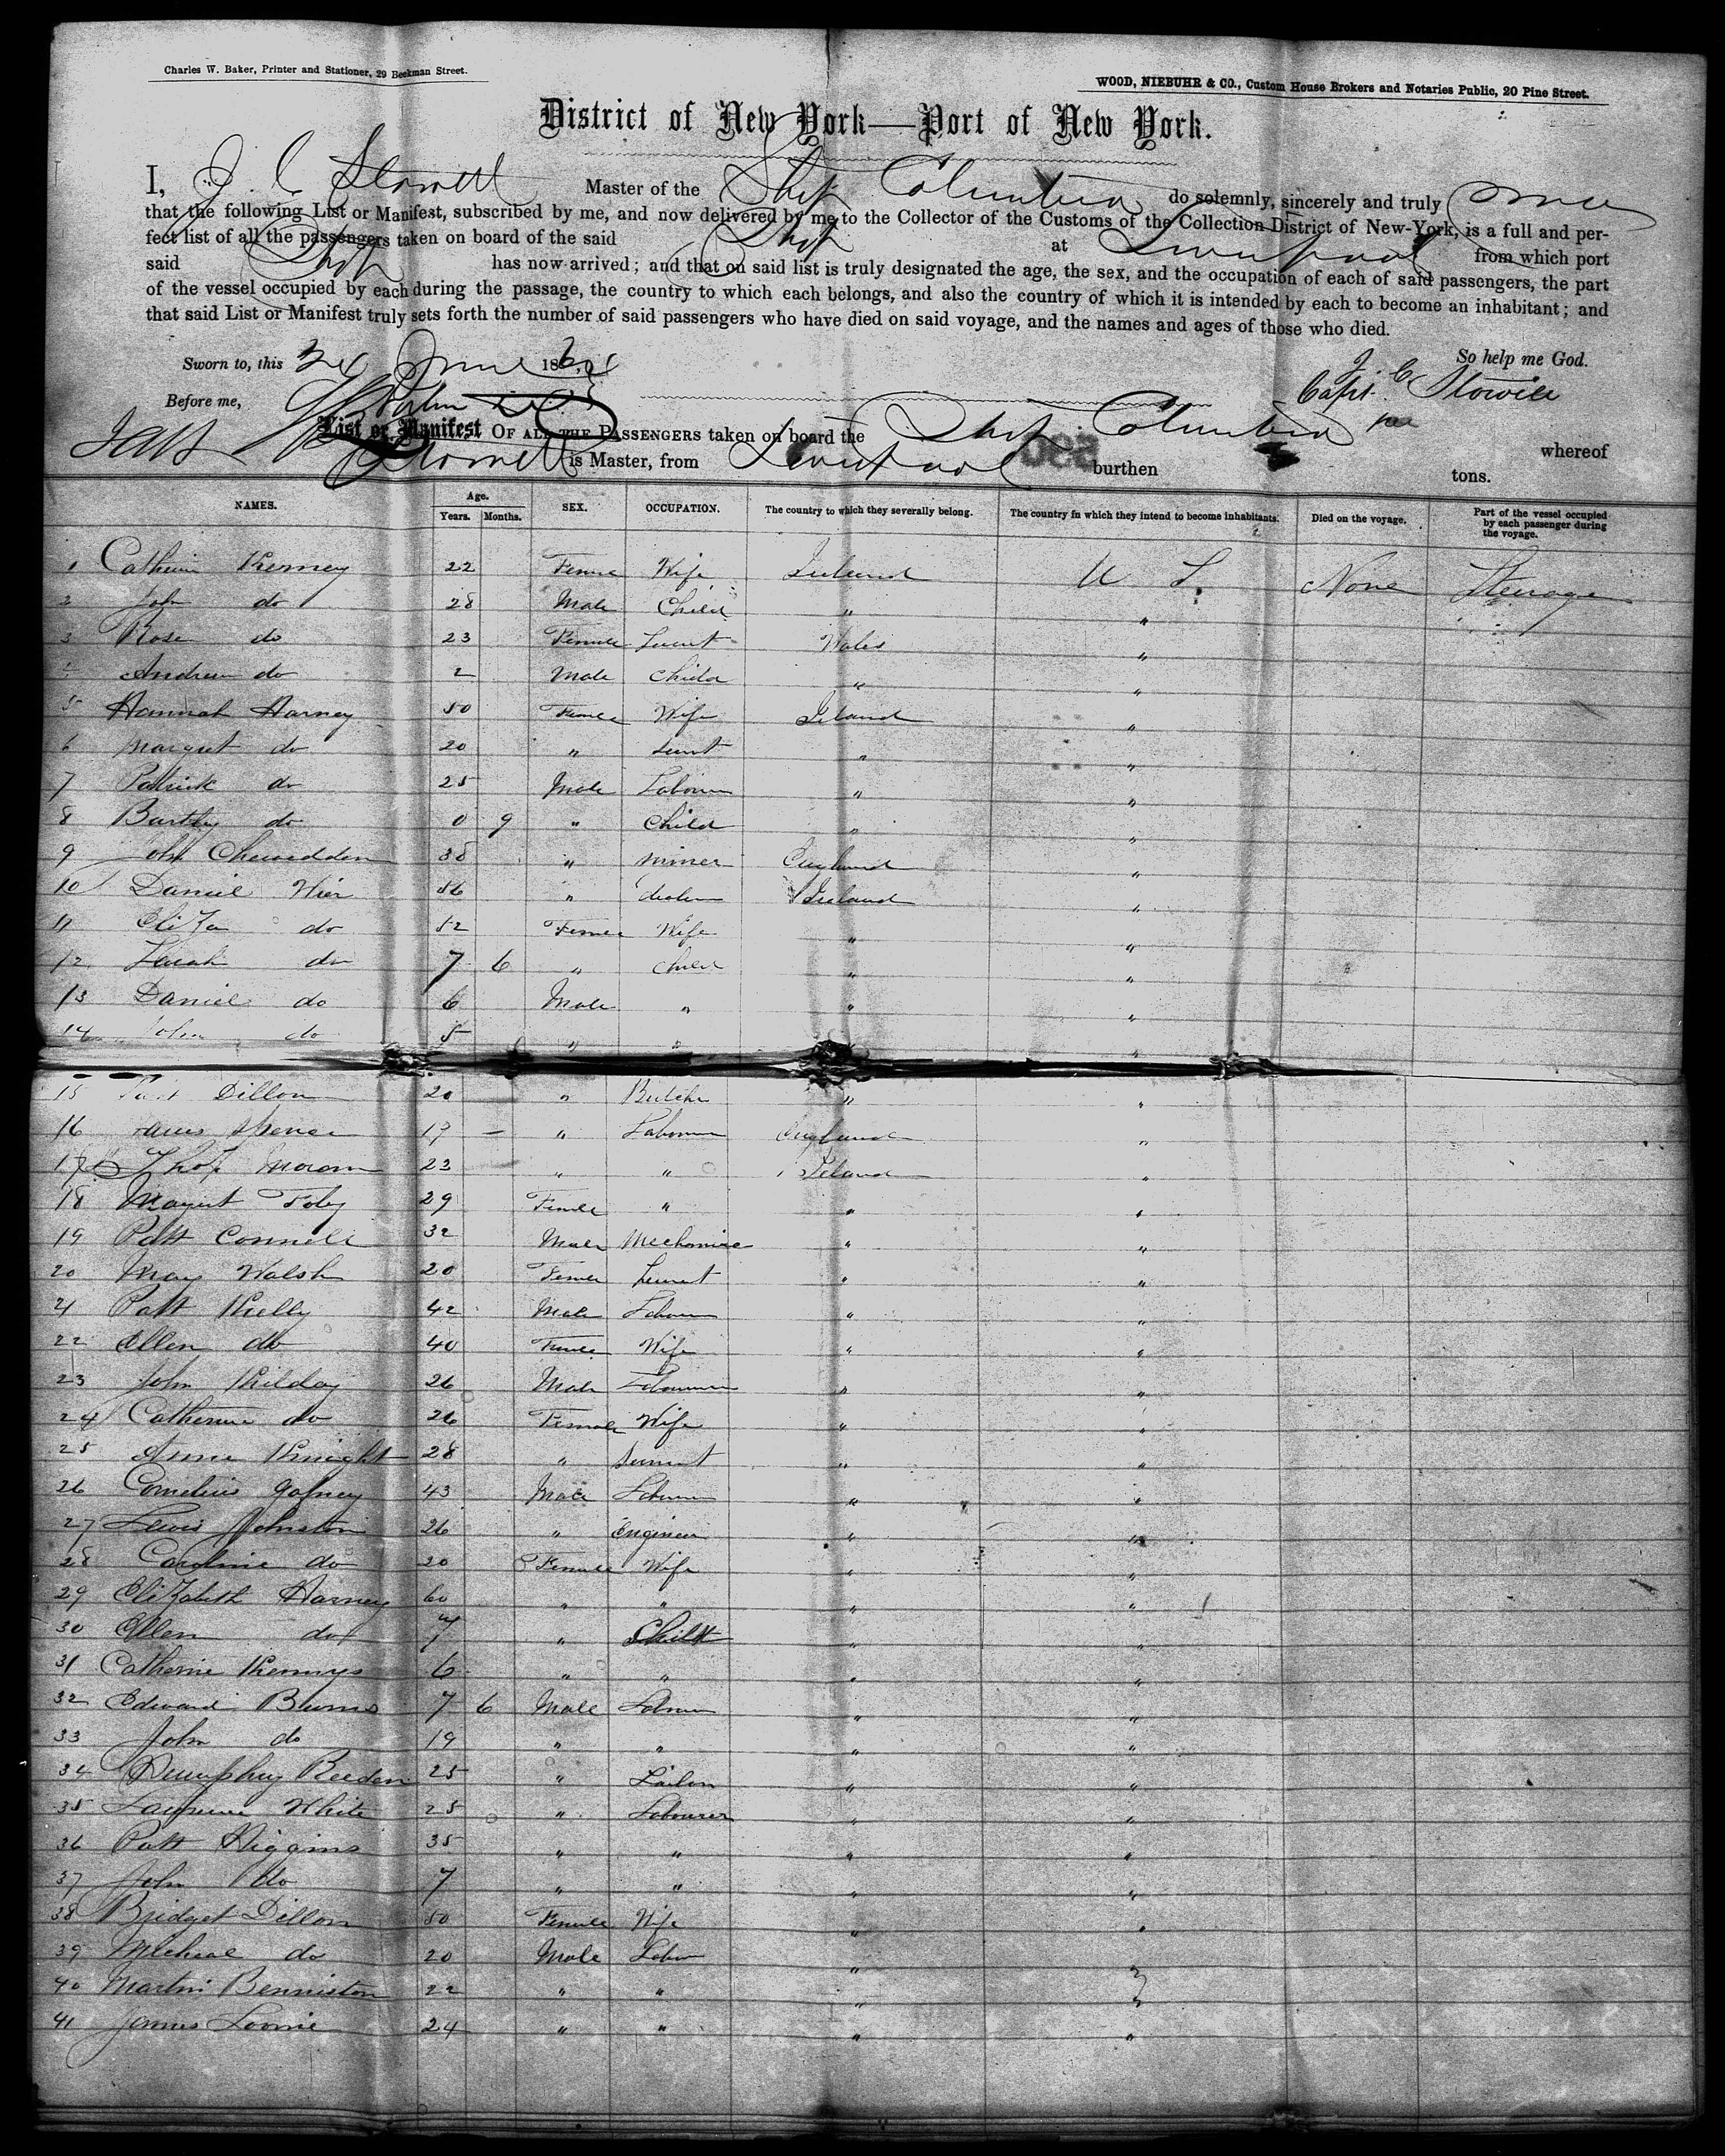 Charles W. Baker, Printer and Stationer, 29 Beekman Street.
WOOD, NIEBUHR & CO., Custom House Brokers and Notaries Public, 20 Pine Street.
District of New York—Port of New York.
I, J. C. Stowell Master of the Ship Columbia do solemnly, sincerely and truly
that the following List or Manifest, subscribed by me, and now delivered by me to the Collector of the Customs of the Collection District of New-York, is a full and per-
fect list of all the passengers taken on board of the said Ship at Liverpool from which port
said Ship has now arrived; and that on said list is truly designated the age, the sex, and the occupation of each of said passengers, the part
of the vessel occupied by each during the passage, the country to which each belongs, and also the country of which it is intended by each to become an inhabitant; and
that said List or Manifest truly sets forth the number of said passengers who have died on said voyage, and the names and ages of those who died.
Sworn to, this June 186 So help me God.
Before me, J. C. Stowell
List or Manifest OF ALL THE PASSENGERS taken on board the Ship Columbia whereof
Stowell is Master, from Liverpool burthen tons.
NAMES. Age. Years. Months. SEX. OCCUPATION. The country to which they severally belong. The country in which they intend to become inhabitants. Died on the voyage. Part of the vessel occupied by each passenger during the voyage.
1 Catherin Kerney 22 Female Wife Ireland U S. None Steerage
2 John do 28 Male Child " "
3 Rose do 23 Female Wales "
4 Andrew do 2 Male Child " "
5 Hannah Harney 50 Female Wife Ireland "
6 Margret do 20 " " "
7 Patrick do 25 Male Labourer " "
8 Bartly do 0 9 " Child " "
9 John Chewidden 38 " Miner England "
10 Daniel Wier 56 " dealer Ireland "
11 Eliza do 52 Female Wife " "
12 Sarah do 7 6 " Child " "
13 Daniel do 6 Male " " "
14 John do 5 " " "
15 Dillon 20 " Butcher " "
16 Spence 19 — " Labourer England "
17 Thos Moran 23 " " Ireland "
18 Margret Foley 29 Female " " "
19 Patt Connell 32 Male Mechanic " "
20 Mary Walsh 20 Female Servnt " "
21 Patt Kelly 42 Male Labourer " "
22 Ellen do 40 Female Wife " "
23 John Kilday 26 Male Labourer " "
24 Catherine do 26 Female Wife " "
25 Annie Knight 28 " Servnt " "
26 Cornelius Gafney 43 Male Labourer " "
27 Lewis Johnston 26 " Engineer " "
28 Caroline do 20 Female Wife " "
29 Elizabeth Harney 60 " " " "
30 Ellen do 7 " Child " "
31 Catherine 6 " " " "
32 Edward Burns 7 6 Male Labourer " "
33 John do 19 " " " "
34 Humphrey Reeden 25 " Sailor " "
35 Lawrence White 25 " Labourer " "
36 Patt Higgins 35 " " " "
37 John do 7 " " " "
38 Bridget Dillon 50 Female Wife " "
39 Micheal do 20 Male Labor " "
40 Martin Benniston 22 " " " "
41 James Loonie 24 " " " "